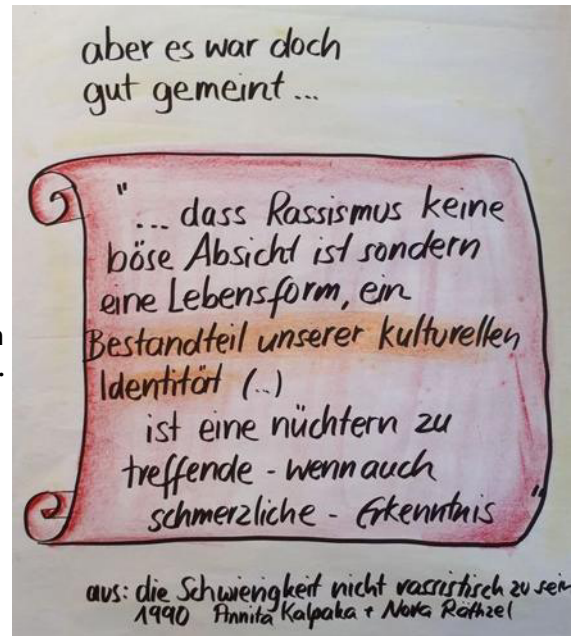 aber es war doch
gut gemeint ...
"... dass Rassismus keine
böse Absicht ist sondern
eine Lebensform, ein
Bestandteil unserer kulturellen
Identität (..)
ist eine nüchtern zu
treffende - wenn auch
schmerzliche - Erkenntnis"
aus: die Schwierigkeit nicht rassistisch zu sein
1990 Annita Kalpaka + Nora Räthzel